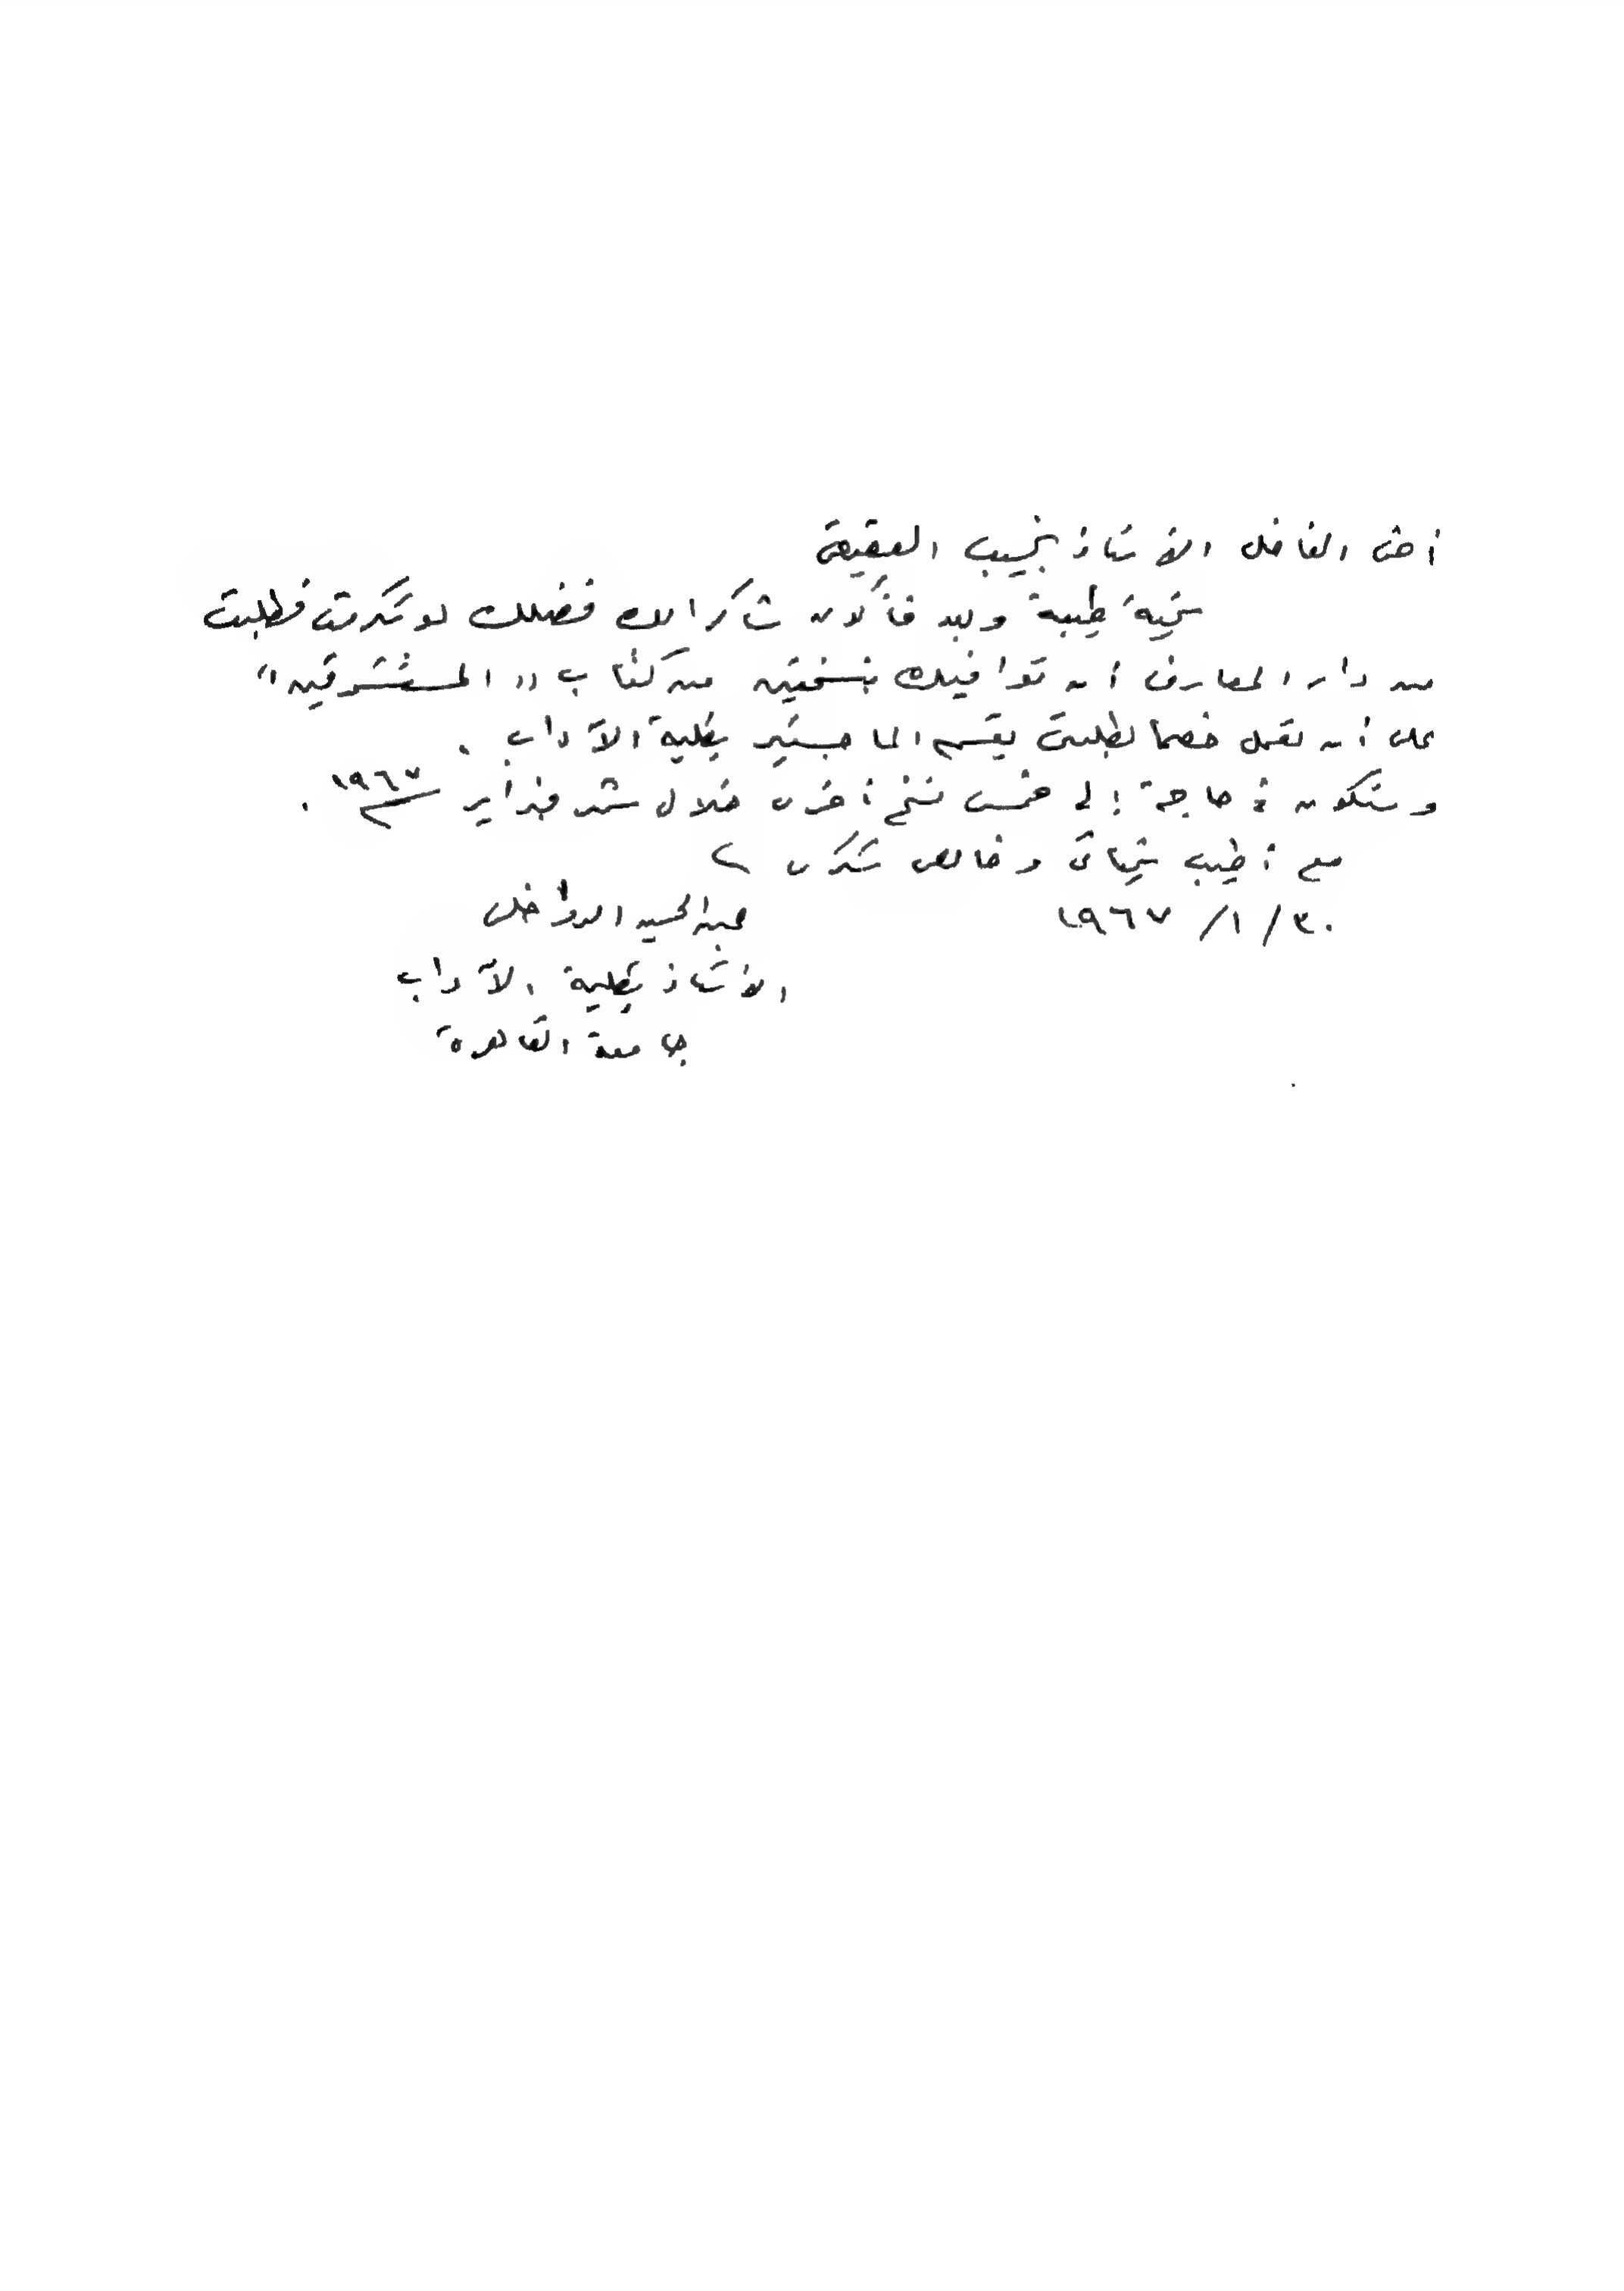 أخى الفاضل الأستاذ نجيب العقيقى
تحية طيبة وبعد فأكون شاكرا لك فضلك لو تكرمت فطلبت
من دار المعارف أن توافيك بنسختين من كتاب "المستشرقين"
على أن تعمل خصما لطلبتى بقسم الماجستير بكلية الآداب .
وستكون فى حاجة إلى خمس نسخ أخرى خلال شهر فبراير ١٩٦٧ .
مع أطيب تحياتى وخالص شكرى
٣٠/ ١/ ١٩٦٧ عبد الحميد الدواخلى
الأستاذ بكلية الآداب
جامعة القاهرة